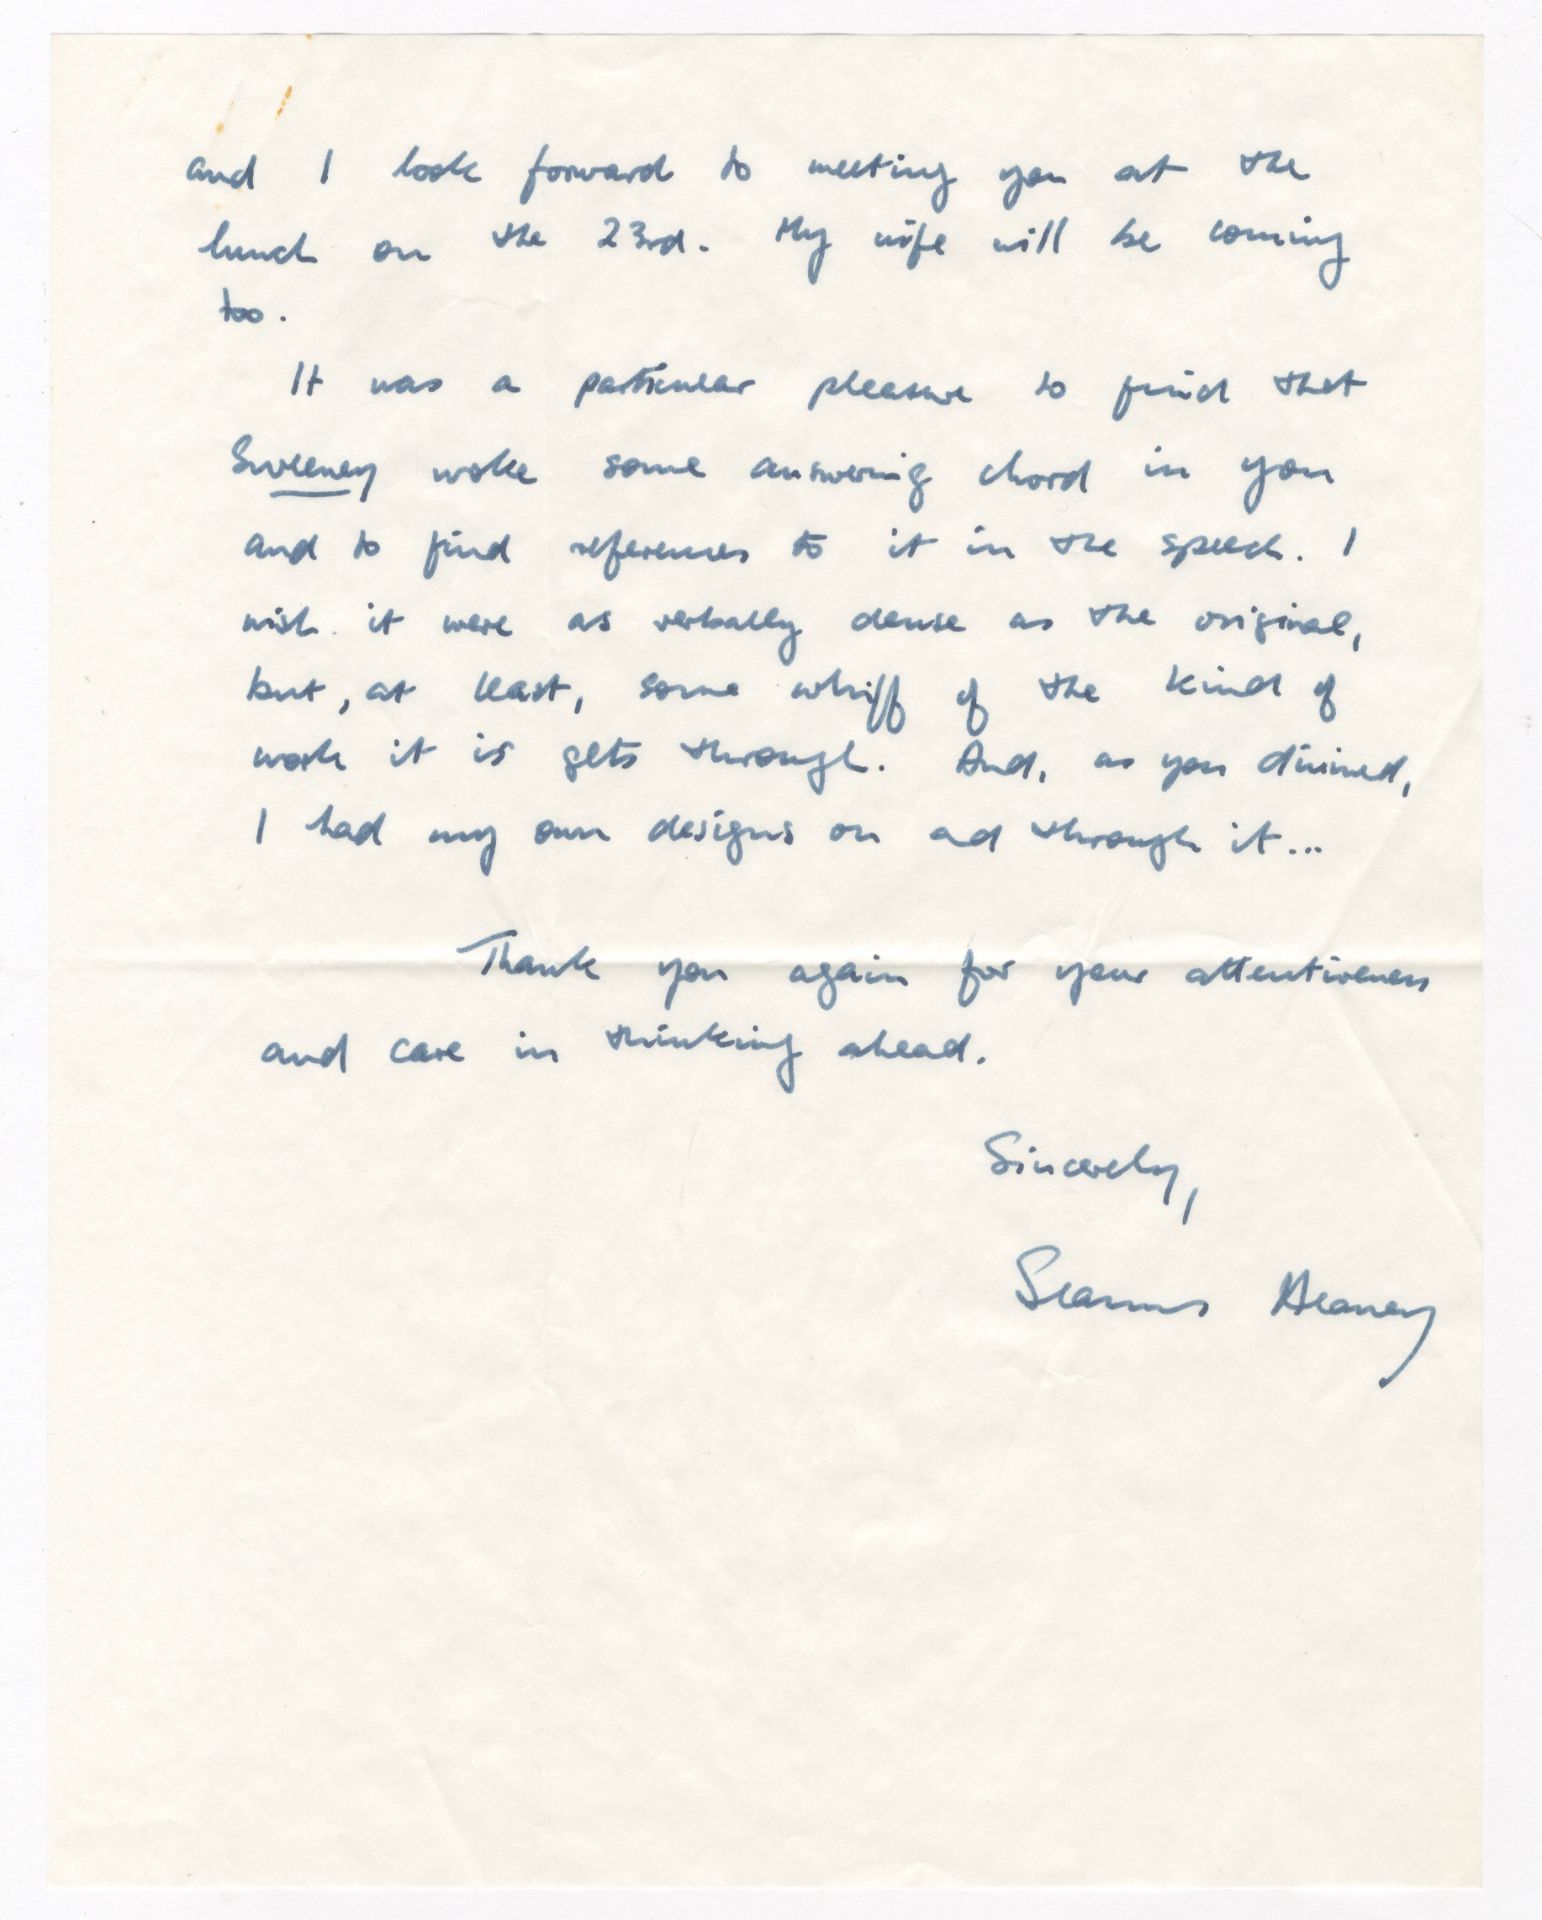 and I look forward to meeting you at the
lunch on the 23rd. My wife will be coming
too.
It was a particular pleasure to find that
Sweeney woke some answering chord in you
and to find references to it in the speech. I
wish it were as verbally dense as the original,
but, at least, some whiff of the kind of
work it is gets through. And, as you divined,
I had my own designs on ad through it...
Thank you again for your attentiveness
and care in thinking ahead.
Sincerely,
Seamus Heaney